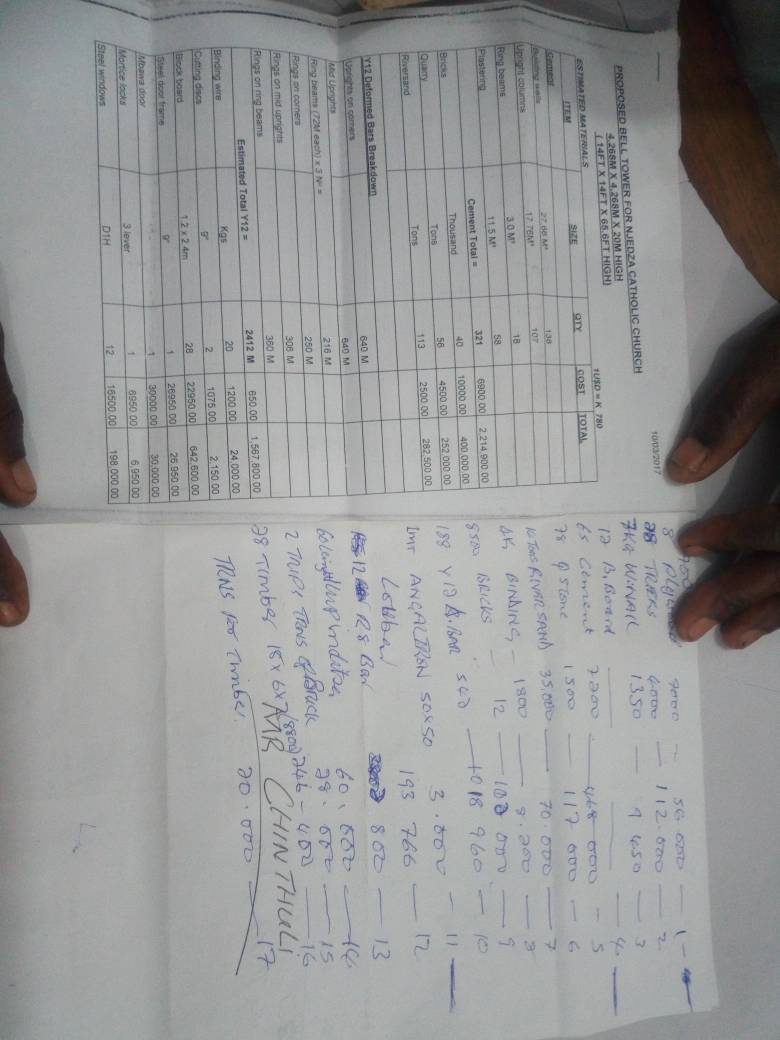 10/03/2017
PROPOSED BELL TOWER FOR NJEDZA CATHOLIC CHURCH
4.268M X 4.268M X 20M HIGH
( 14FT X 14FT X 65.6FT HIGH)
1USD = K 780
ESTIMATED MATERIALS
ITEM SIZE QTY COST TOTAL
Cement 27.68 M³ 138
Building walls 17.76M³ 107
Upright columns 3.0 M³ 18
Ring beams 11.5 M³ 58
Plastering Cement Total = 321 6900.00 2,214,900.00
Bricks Thousand 40 10000.00 400,000.00
Quarry Tons 56 4500.00 252,000.00
Riversand Tons 113 2500.00 282,500.00
Y12 Deformed Bars Breakdown
Uprights on corners 640 M
Mid Uprights 640 M
Ring beams (72M each) x 3 Nº = 216 M
Rings on corners 250 M
Rings on mid uprights 306 M
Rings on ring beams 360 M
Estimated Total Y12 = 2412 M 650.00 1,567,800.00
Binding wire Kgs 20 1200.00 24,000.00
Cutting discs 9" 2 1075.00 2,150.00
Block board 1.2 x 2.4m 28 22950.00 642,600.00
Steel door frame 9" 1 26950.00 26,950.00
Mbawa door 1 30000.00 30,000.00
Mortice locks 3 lever 1 6950.00 6,950.00
Steel windows D1H 12 16500.00 198,000.00
8 7000 - 56.000 - 1
28 4000 - 112.000 - 2
7KG W.NAIL 1350 - 9 450 - 3
12 B.Board - 4
65 Cement 7200 - 468 000 - 5
78 Q stone 1500 - 117 000 - 6
RIVER SAND 35.000 - 70.000 - 7
BINDING - 1800 - 8
8500 BRICKS 12 - 102 000 - 9
188 Y12 D.BAR 540 - 1018 960 - 10
3.000 - 11
ANGALIRON 50X50 193 766 - 12
800 - 13
R8 Bar 60.000 - 14
28.000 - 15
2 TRIPS TRNS of Brick 246-400 - 16
28 Timber 18x6x2 (8800) AAR CHINTHULI
TRNS for Timber. 20.000 - 17